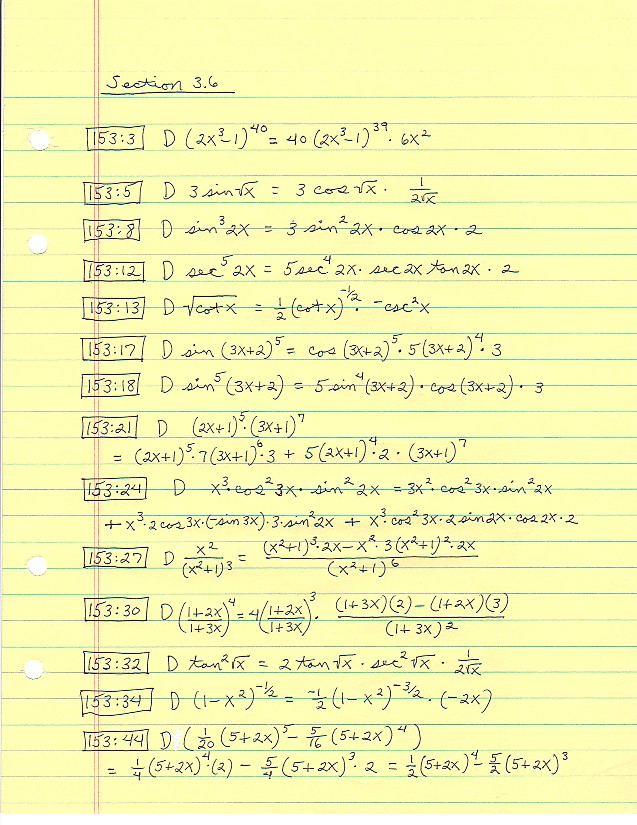 Section 3.6
153:3 D (2x³-1)⁴⁰ = 40 (2x³-1)³⁹ · 6x²
153:5 D 3 sin√x = 3 cos √x · 1/(2√x)
153:8 D sin³ 2x = 3 sin² 2x · cos 2x · 2
153:12 D sec⁵ 2x = 5 sec⁴ 2x · sec 2x tan 2x · 2
153:13 D √(cot x) = 1/2 (cot x)^(-1/2) · -csc² x
153:17 D sin (3x+2)⁵ = cos (3x+2)⁵ · 5 (3x+2)⁴ · 3
153:18 D sin⁵ (3x+2) = 5 sin⁴ (3x+2) · cos (3x+2) · 3
153:21 D (2x+1)⁵ · (3x+1)⁷
= (2x+1)⁵ · 7 (3x+1)⁶ · 3 + 5 (2x+1)⁴ · 2 · (3x+1)⁷
153:24 D x³ · cos² 3x · sin² 2x = 3x² · cos² 3x · sin² 2x
+ x³ · 2 cos 3x · (-sin 3x) · 3 · sin² 2x + x³ · cos² 3x · 2 sin 2x · cos 2x · 2
153:27 D x²/(x²+1)³ = ((x²+1)³ · 2x - x² · 3 (x²+1)² · 2x)/(x²+1)⁶
153:30 D ((1+2x)/(1+3x))⁴ = 4 ((1+2x)/(1+3x))³ · ((1+3x)(2) - (1+2x)(3))/(1+3x)²
153:32 D tan² √x = 2 tan √x · sec² √x · 1/(2√x)
153:34 D (1-x²)^(-1/2) = -1/2 (1-x²)^(-3/2) · (-2x)
153:44 D (1/20 (5+2x)⁵ - 5/16 (5+2x)⁴)
= 1/4 (5+2x)⁴ · (2) - 5/4 (5+2x)³ · 2 = 1/2 (5+2x)⁴ - 5/2 (5+2x)³